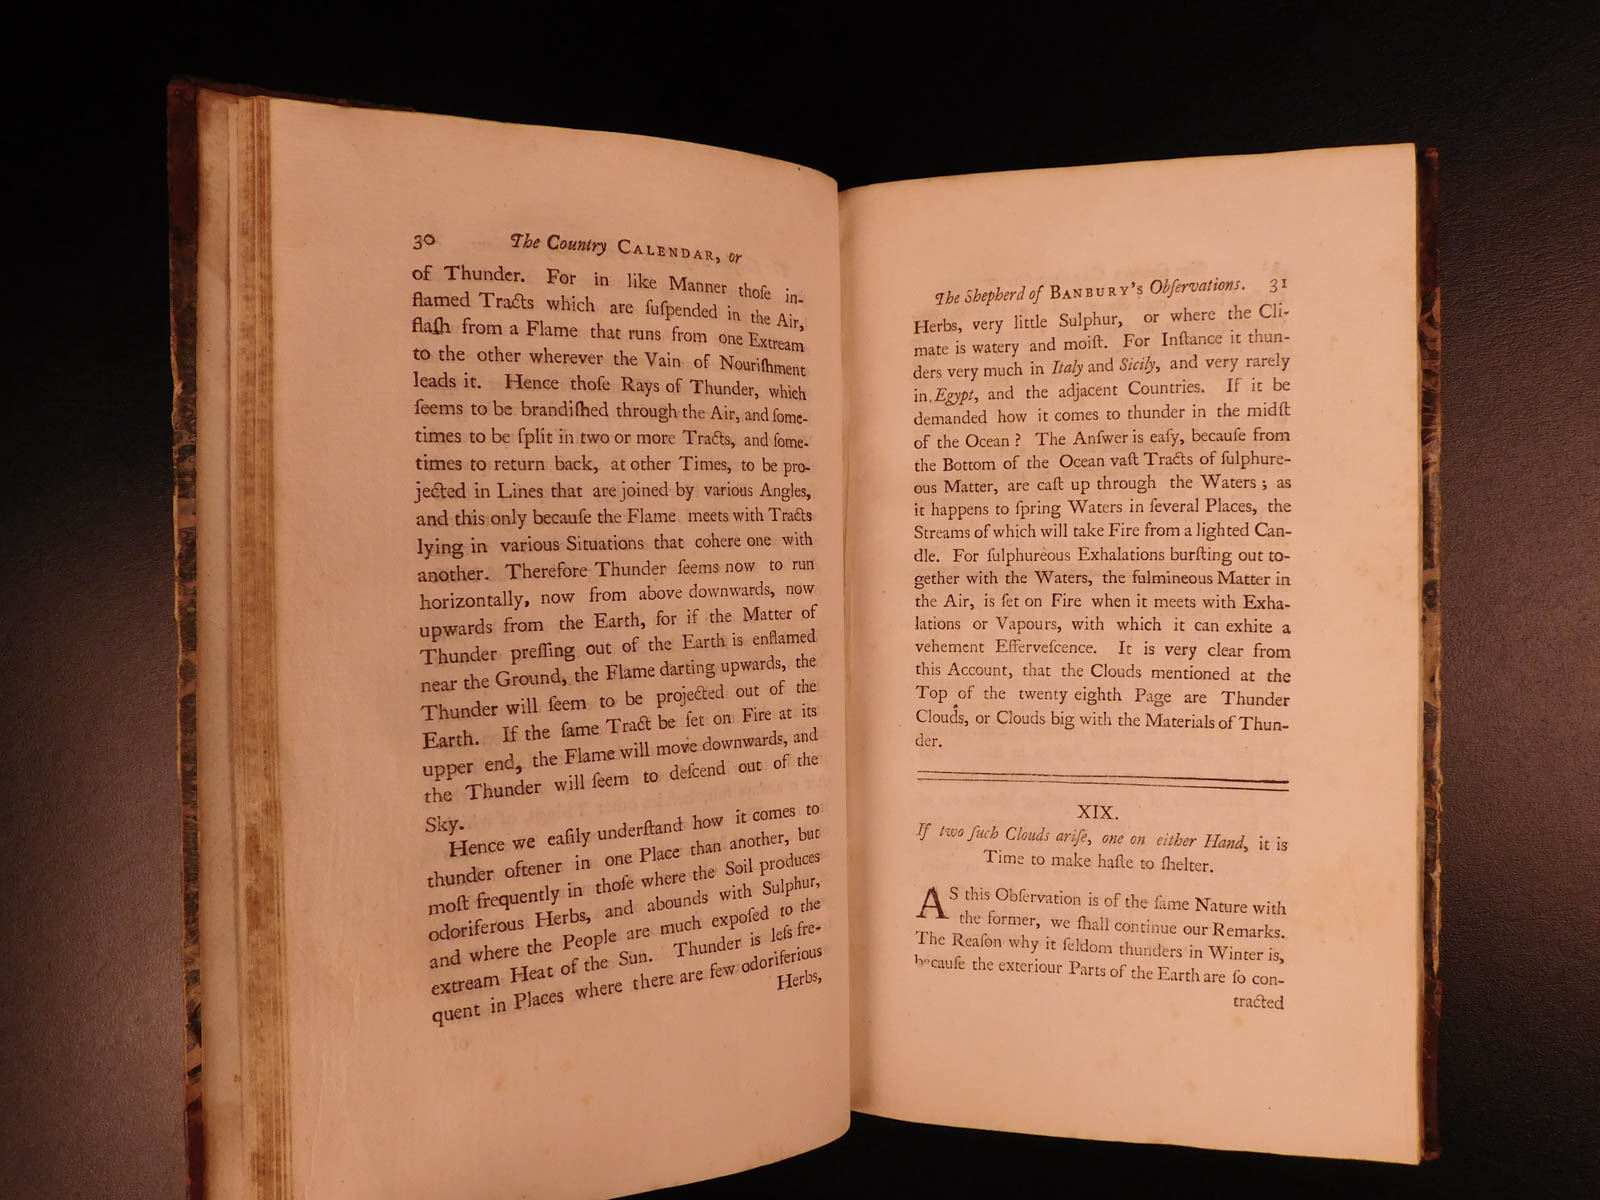 30 The Country CALENDAR, or
of Thunder. For in like Manner thoſe in-
flamed Tracts which are ſuſpended in the Air,
flaſh from a Flame that runs from one Extream
to the other wherever the Vain of Nouriſhment
leads it. Hence thoſe Rays of Thunder, which
ſeems to be brandiſhed through the Air, and ſome-
times to be ſplit in two or more Tracts, and ſome-
times to return back, at other Times, to be pro-
jected in Lines that are joined by various Angles,
and this only becauſe the Flame meets with Tracts
lying in various Situations that cohere one with
another. Therefore Thunder ſeems now to run
horizontally, now from above downwards, now
upwards from the Earth, for if the Matter of
Thunder preſſing out of the Earth is enflamed
near the Ground, the Flame darting upwards, the
Thunder will ſeem to be projected out of the
Earth. If the ſame Tract be ſet on Fire at its
upper end, the Flame will move downwards, and
the Thunder will ſeem to deſcend out of the
Sky.
Hence we eaſily underſtand how it comes to
thunder oftener in one Place than another, but
moſt frequently in thoſe where the Soil produces
odoriferous Herbs, and abounds with Sulphur,
and where the People are much expoſed to the
extream Heat of the Sun. Thunder is leſs fre-
quent in Places where there are few odoriferious
Herbs,
The Shepherd of BANBURY's Obſervations. 31
Herbs, very little Sulphur, or where the Cli-
mate is watery and moiſt. For Inſtance it thun-
ders very much in Italy and Sicily, and very rarely
in Egypt, and the adjacent Countries. If it be
demanded how it comes to thunder in the midſt
of the Ocean? The Anſwer is eaſy, becauſe from
the Bottom of the Ocean vaſt Tracts of ſulphure-
ous Matter, are caſt up through the Waters; as
it happens to ſpring Waters in ſeveral Places, the
Streams of which will take Fire from a lighted Can-
dle. For ſulphureous Exhalations burſting out to-
gether with the Waters, the fulmineous Matter in
the Air, is ſet on Fire when it meets with Exha-
lations or Vapours, with which it can exhite a
vehement Efferveſcence. It is very clear from
this Account, that the Clouds mentioned at the
Top of the twenty eighth Page are Thunder
Clouds, or Clouds big with the Materials of Thun-
der.
XIX.
If two ſuch Clouds ariſe, one on either Hand, it is
Time to make haſte to ſhelter.
AS this Obſervation is of the ſame Nature with
the former, we ſhall continue our Remarks.
The Reaſon why it ſeldom thunders in Winter is,
becauſe the exteriour Parts of the Earth are ſo con-
tracted